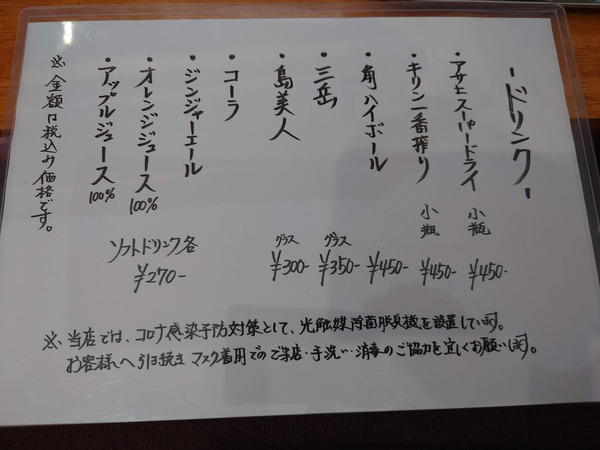 -ドリンク-
・アサヒスーパードライ 小瓶 ¥450-
・キリン一番搾り 小瓶 ¥450-
・角ハイボール ¥450-
・三岳 グラス ¥350-
・島美人 グラス ¥300-
・コーラ
・ジンジャーエール
・オレンジジュース 100%
・アップルジュース 100%
ソフトドリンク各
¥270-
※金額は税込み価格です。
※当店では、コロナ感染予防対策として、光触媒除菌脱臭機を設置しています。
お客様へ引き続きマスク着用でのご来店・手洗い・消毒のご協力を宜しくお願いします。